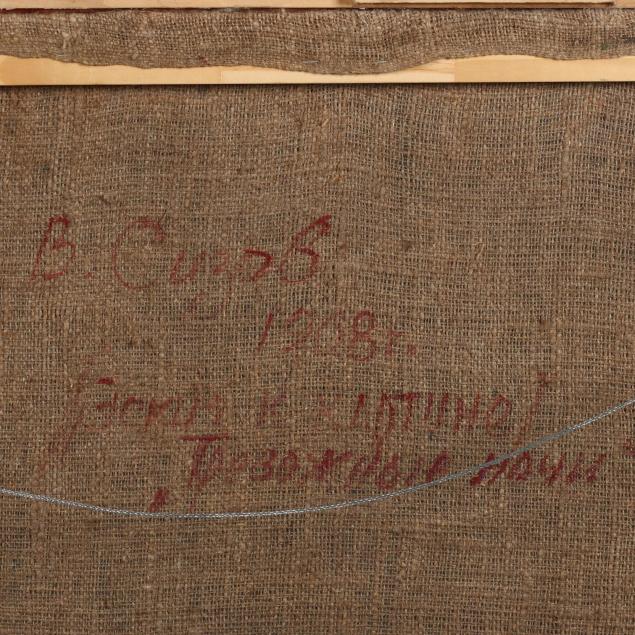 В. Сидоров
19 8 г.
/Эскиз к картине/
„Тревожные ночи"